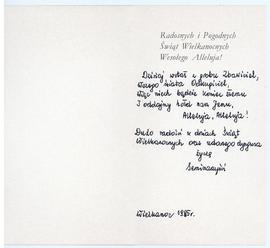 Radosnych i Pogodnych
Świąt Wielkanocnych
Wesołego Alleluja!
Dzisiaj wstał z grobu Zbawiciel,
świata Odkupiciel,
Więc niech będzie koniec
I oddajmy hołd Jemu,
Alleluja, Alleluja!
Dużo radości w dniach Świąt
Wielkanocnych oraz udanego dyngusa
życzą
Seminarzyści
Wielkanoc 1985r.